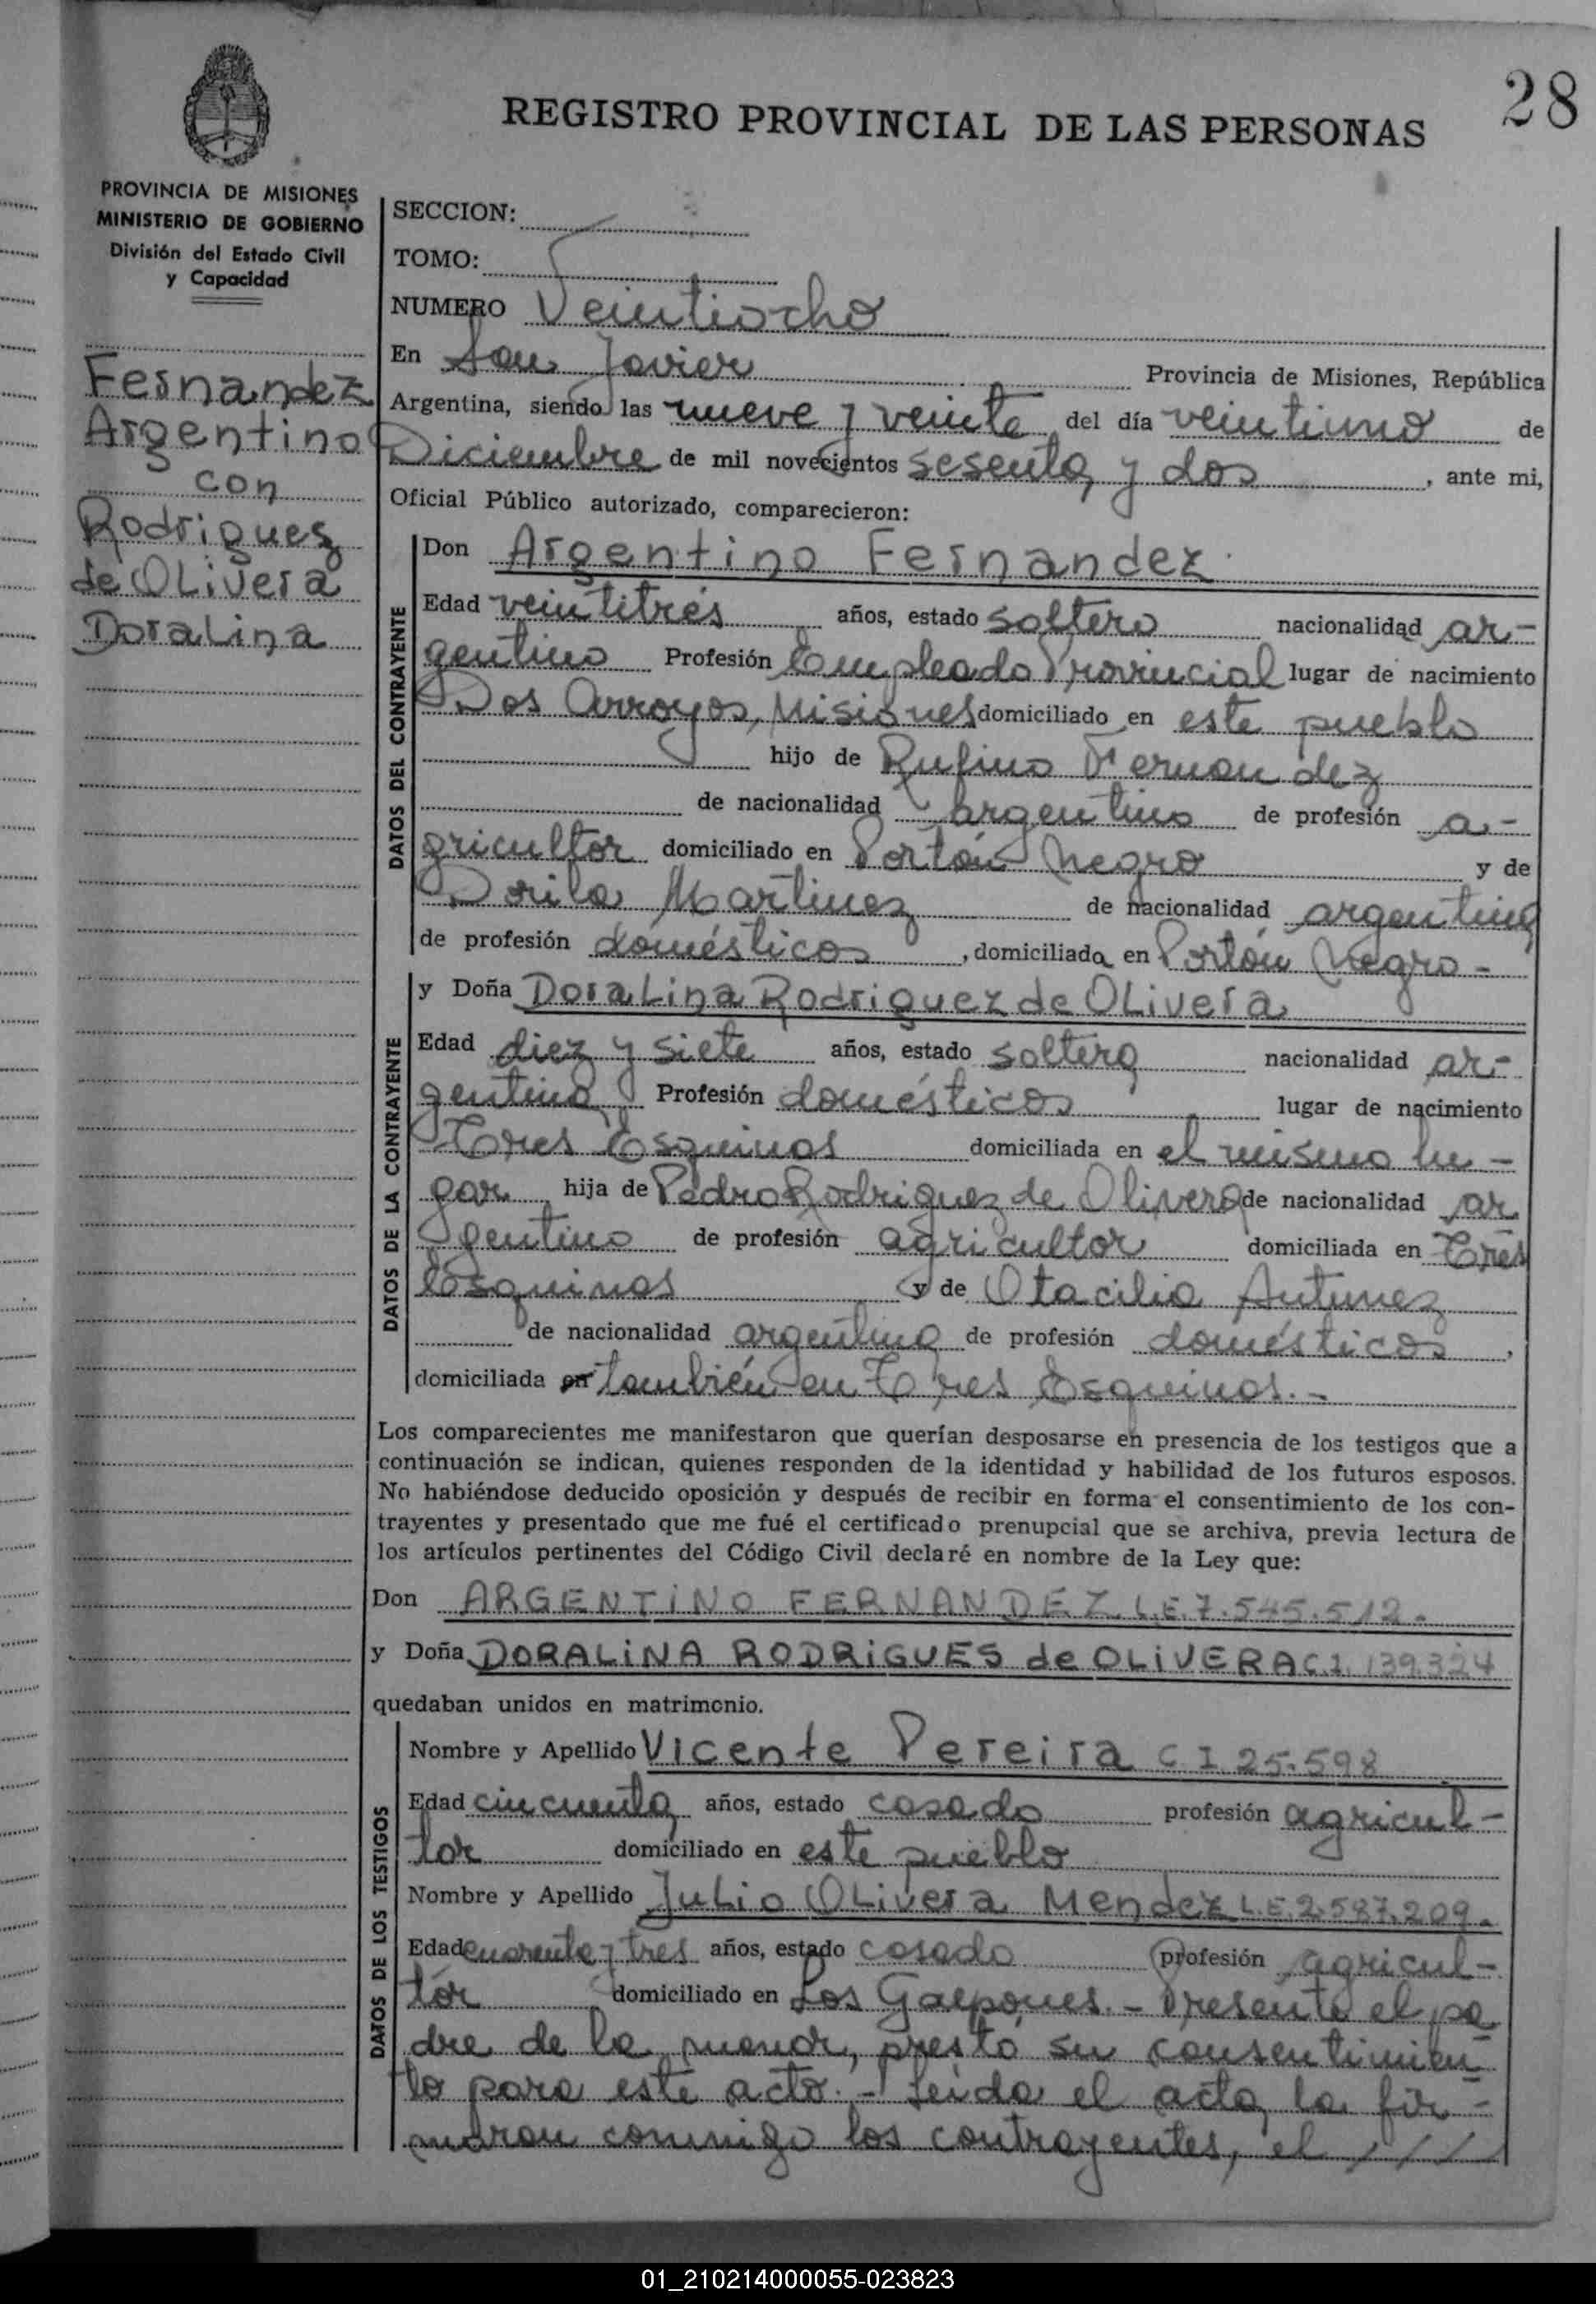 28
REGISTRO PROVINCIAL DE LAS PERSONAS
PROVINCIA DE MISIONES
MINISTERIO DE GOBIERNO
División del Estado Civil
y Capacidad
Fernandez
Argentino
con
Rodrigues
de Olivera
Doralina
SECCION:
TOMO:
NUMERO Veintiocho
En San Javier Provincia de Misiones, República
Argentina, siendo las nueve y veinte del día veintiuno de
Diciembre de mil novecientos sesenta y dos, ante mi,
Oficial Público autorizado, comparecieron:
DATOS DEL CONTRAYENTE
Don Argentino Fernandez
Edad veintitrés años, estado soltero nacionalidad ar-
gentino Profesión Empleado Provincial lugar de nacimiento
Dos Arroyos, Misiones domiciliado en este pueblo
hijo de Rufino Fernandez
de nacionalidad argentino de profesión a-
gricultor domiciliado en Portón Negro y de
Dorila Martinez de nacionalidad argentina
de profesión domésticos, domiciliada en Portón Negro-
DATOS DE LA CONTRAYENTE
y Doña Doralina Rodriguez de Olivera
Edad diez y siete años, estado soltera nacionalidad ar-
gentina Profesión domésticos lugar de nacimiento
Tres Esquinas domiciliada en el mismo lu-
gar hija de Pedro Rodriguez de Olivera de nacionalidad ar
gentino de profesión agricultor domiciliada en Tres
Esquinas y de Otacilia Antunez
de nacionalidad argentina de profesión domésticos,
domiciliada en también en Tres Esquinas.-
Los comparecientes me manifestaron que querían desposarse en presencia de los testigos que a
continuación se indican, quienes responden de la identidad y habilidad de los futuros esposos.
No habiéndose deducido oposición y después de recibir en forma el consentimiento de los con-
trayentes y presentado que me fué el certificado prenupcial que se archiva, previa lectura de
los artículos pertinentes del Código Civil declaré en nombre de la Ley que:
Don ARGENTINO FERNANDEZ L.E.7.545.512.
y Doña DORALINA RODRIGUES de OLIVERA C.I. 139.324
quedaban unidos en matrimonio.
DATOS DE LOS TESTIGOS
Nombre y Apellido Vicente Pereira C I 25.598
Edad cincuenta años, estado casado profesión agricul-
tor domiciliado en este pueblo
Nombre y Apellido Julio Olivera Mendez L.E.2.587.209.
Edad cuarenta y tres años, estado casado profesión agricul-
tor domiciliado en Los Galpones.- Presente el pa
dre de la menor, prestó su consentimien-
to para este acto.- Leída el acta, la fir-
maron conmigo los contrayentes, el ///
01_210214000055-023823